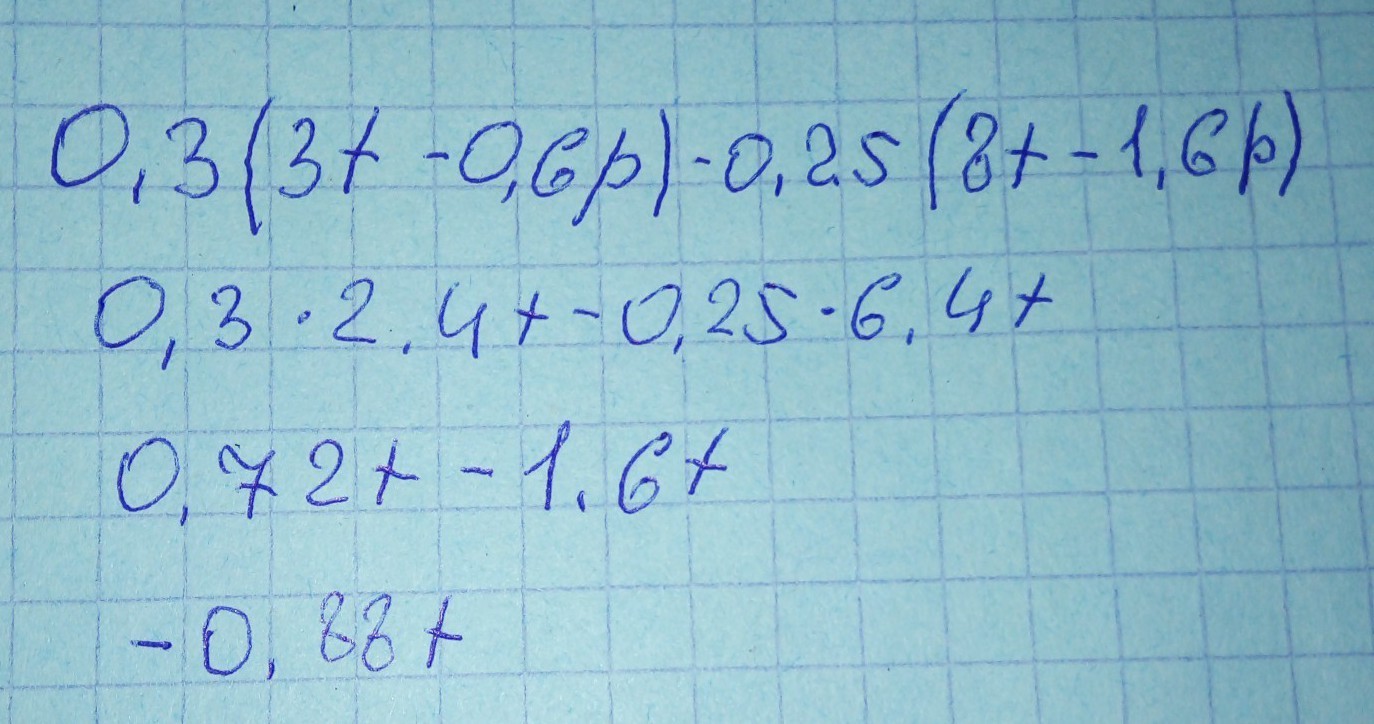 0,3(3t-0,6p)-0,25(8t-1,6p)
0,3·2.4t-0,25·6.4t
0,72t-1.6t
-0,88t